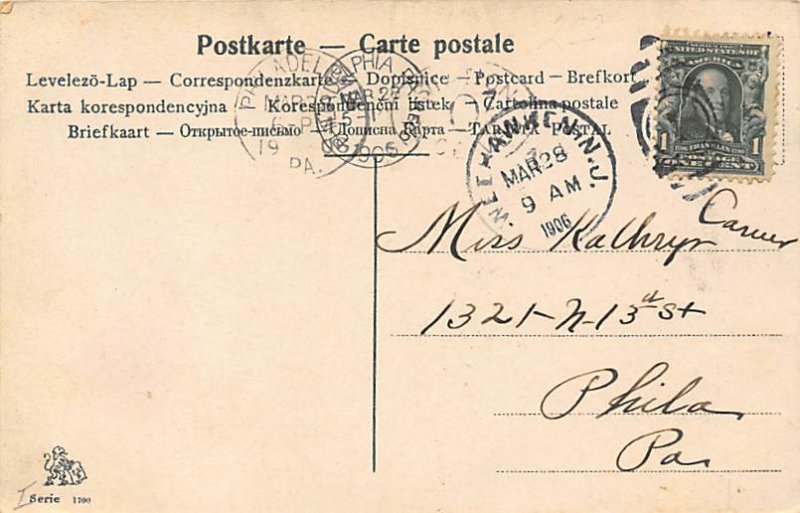 Postkarte — Carte postale
Levelezö-Lap — Correspondenzkarte — Dopisnice — Postcard — Brefkort
Karta korespondencyjna — Korespondenční lístek — Cartolina postale
Briefkaart — Открытое письмо — Дописна Карта — TARJETA POSTAL
PHILADELPHIA
PA.
MAR 28
1906
WEEHAWKEN, N.J.
MAR 28
9 AM
1906
UNITED STATES OF
AMERICA
FRANKLIN
1 POSTAGE 1
ONE CENT
Miss Kathryn Carver
1321-N-13th St
Phila
Pa
Serie 1700